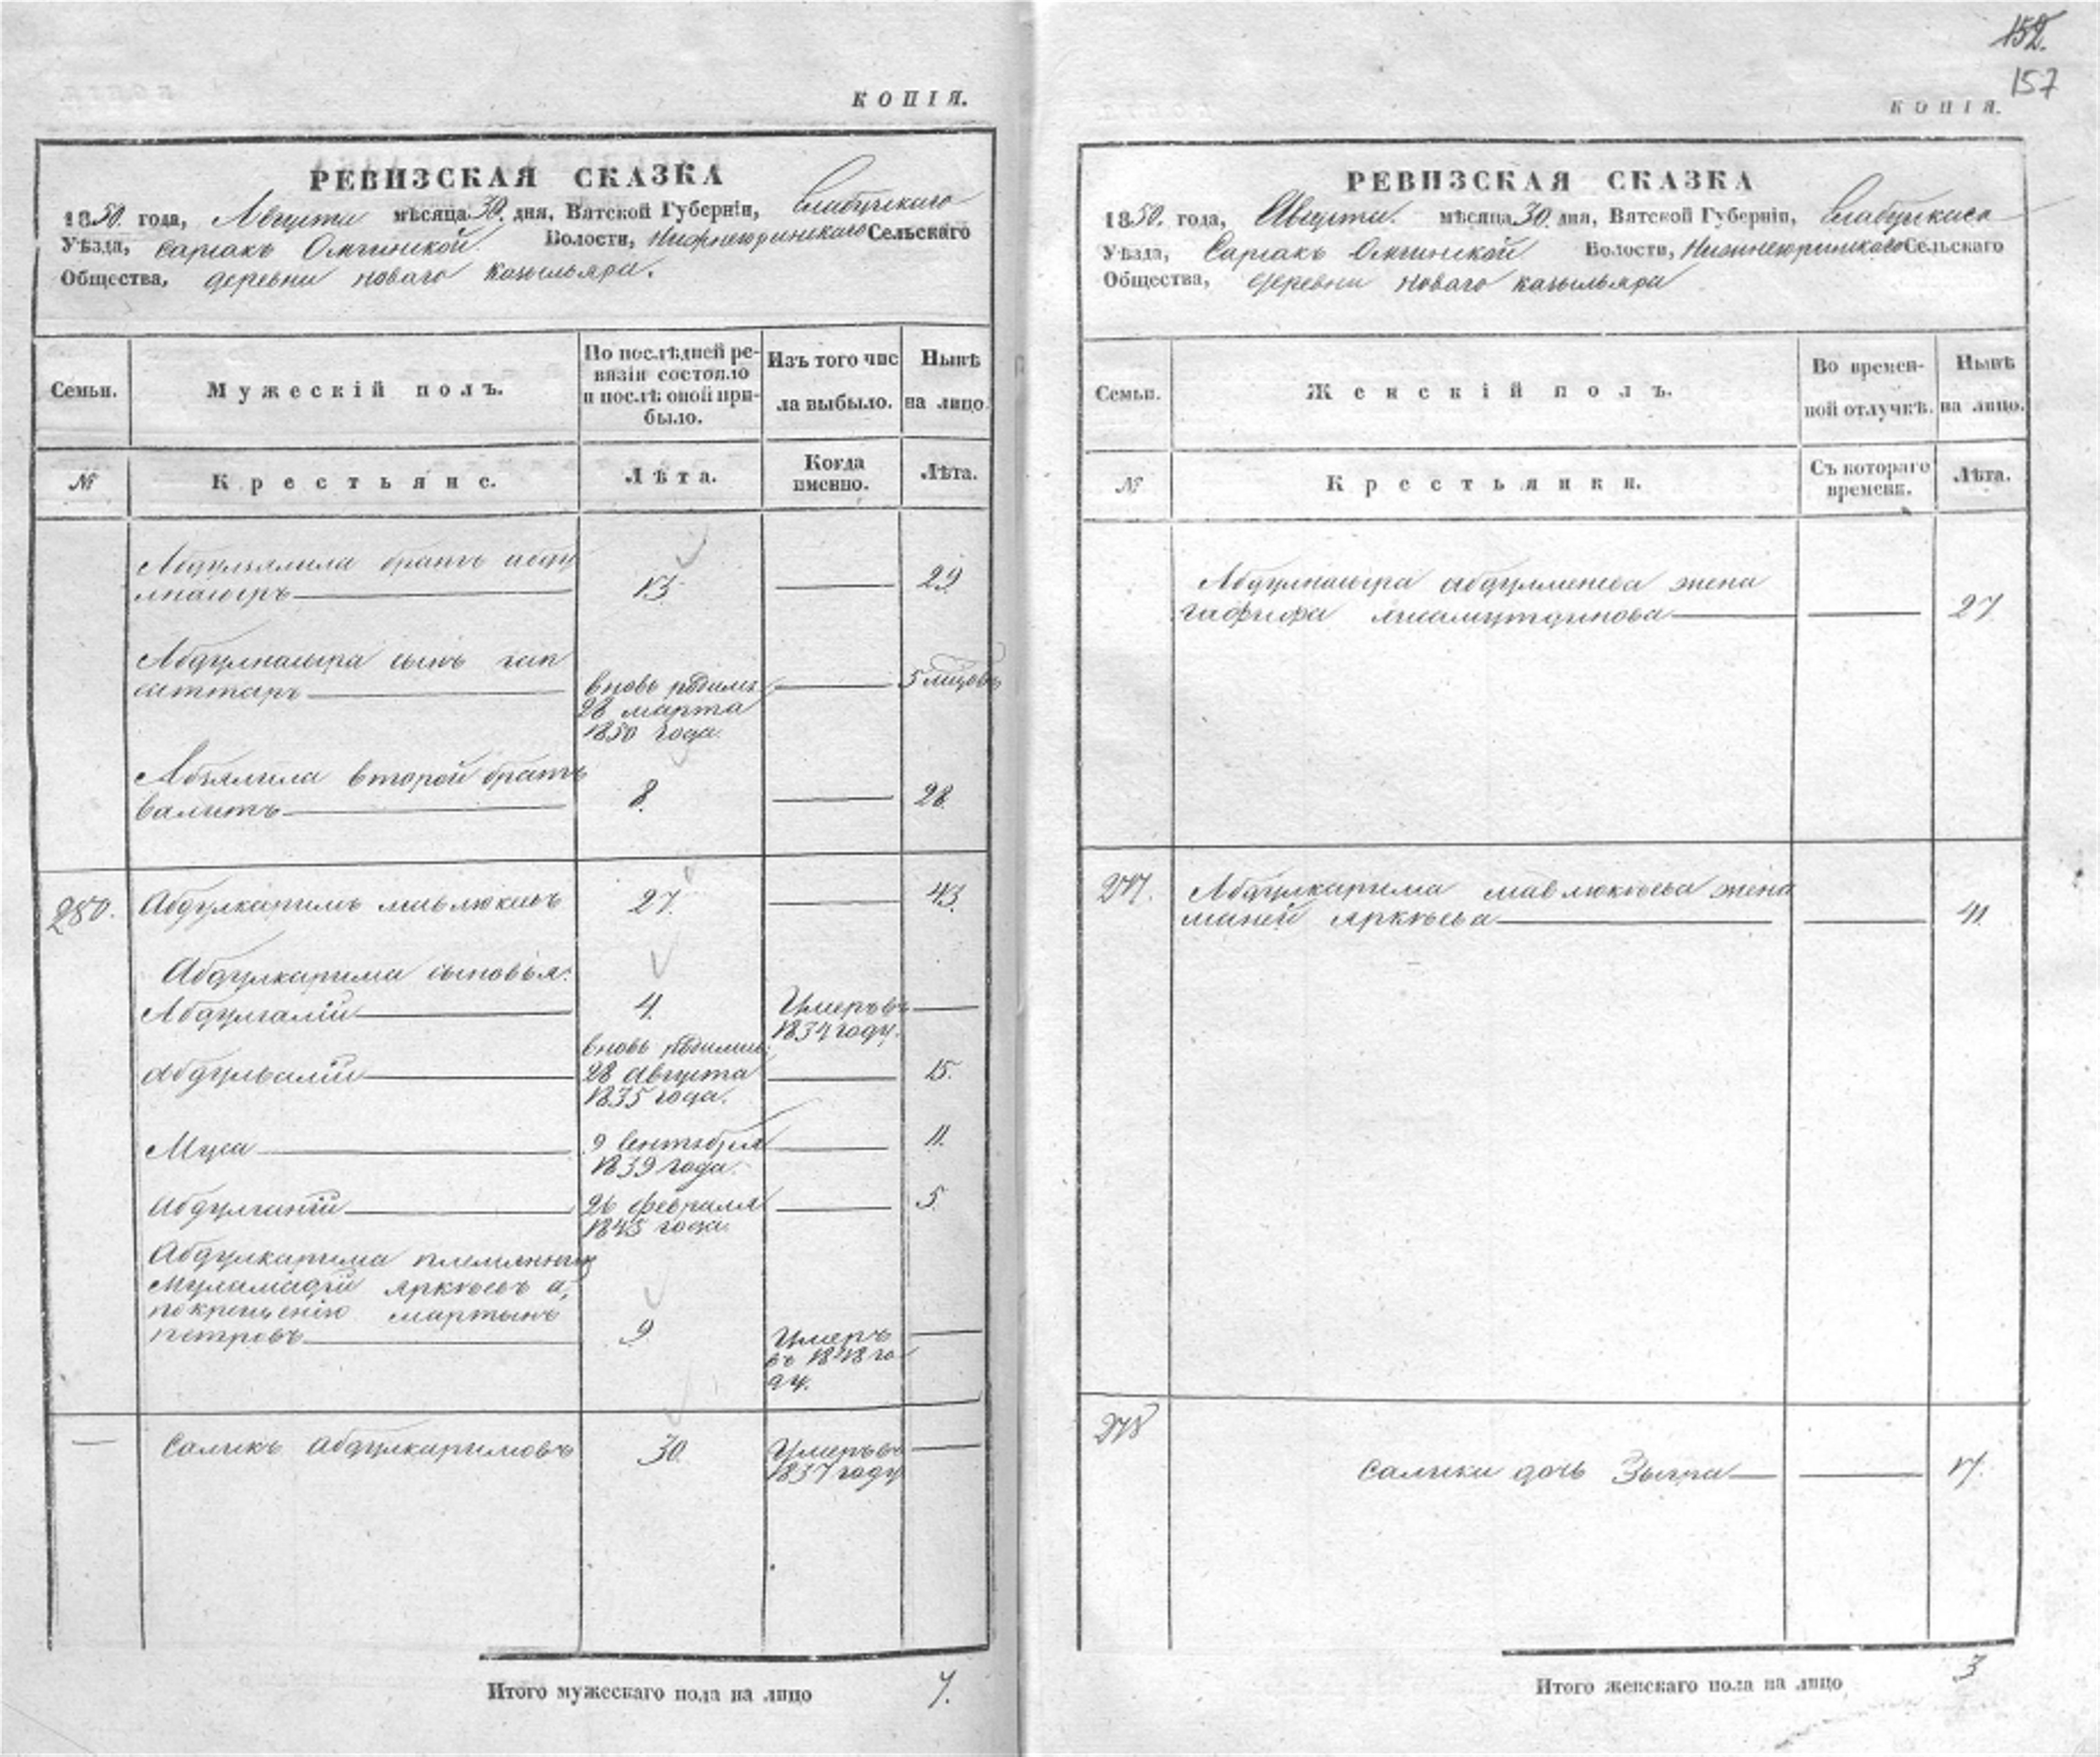 КОПІЯ.
РЕВИЗСКАЯ СКАЗКА
1850. года, Августа мѣсяца 30. дня, Вятской Губерніи, Елабугскаго
Уѣзда, Сарсакъ Омгинской Волости, Сельскаго
Общества, деревни новаго казыльяра.
Семьи. Мужескій полъ. По послѣдней ре-
визіи состояло
и послѣ оной при-
было. Изъ того чис
ла выбыло. Нынѣ
на лицо.
№ Крестьяне. Лѣта. Когда
именно. Лѣта.
Абдулзялила братъ абду
лнасыръ 13. 29
Абдулнасыра сынъ гап
саттаръ вновь родился 5 мѣсяцовъ
28 марта
1850 года.
Абзялила второй братъ
валитъ 8. 28
280. Абдулкаримъ мавлюкеевъ 27. 43.
Абдулкарима сыновья:
Абдулгалій 4. Умеръ въ
1834 году.
абдульвалій вновь родились
28 августа 15.
1835 года.
Муса 9 сентября 11.
1839 года.
абдулганій 26 февраля 5.
1845 года.
Абдулкарима племянникъ
Яркѣевъ а,
по крещенію мартынъ
петровъ 9 Умеръ
въ 1848 го
ду.
— Саликъ абдулкаримовъ 30. Умеръ въ
1837 году
Итого мужескаго пола на лицо 7.
152.
157
КОПІЯ.
РЕВИЗСКАЯ СКАЗКА
1850. года, Августа. мѣсяца 30. дня, Вятской Губерніи, Елабугскаго
Уѣзда, Сарсакъ Омгинской Волости, Сельскаго
Общества, деревни новаго казыльяра
Семьи. Женскій полъ. Во времен-
ной отлучкѣ. Нынѣ
на лицо.
№ Крестьянки. Съ котораго
времени. Лѣта.
Абдулнасыра абдулменева жена
гафифа 27
277. Абдулкарима мавлюкѣева жена
Яркѣева 41.
278
Салики дочь Зыгра 17.
Итого женскаго пола на лицо 3